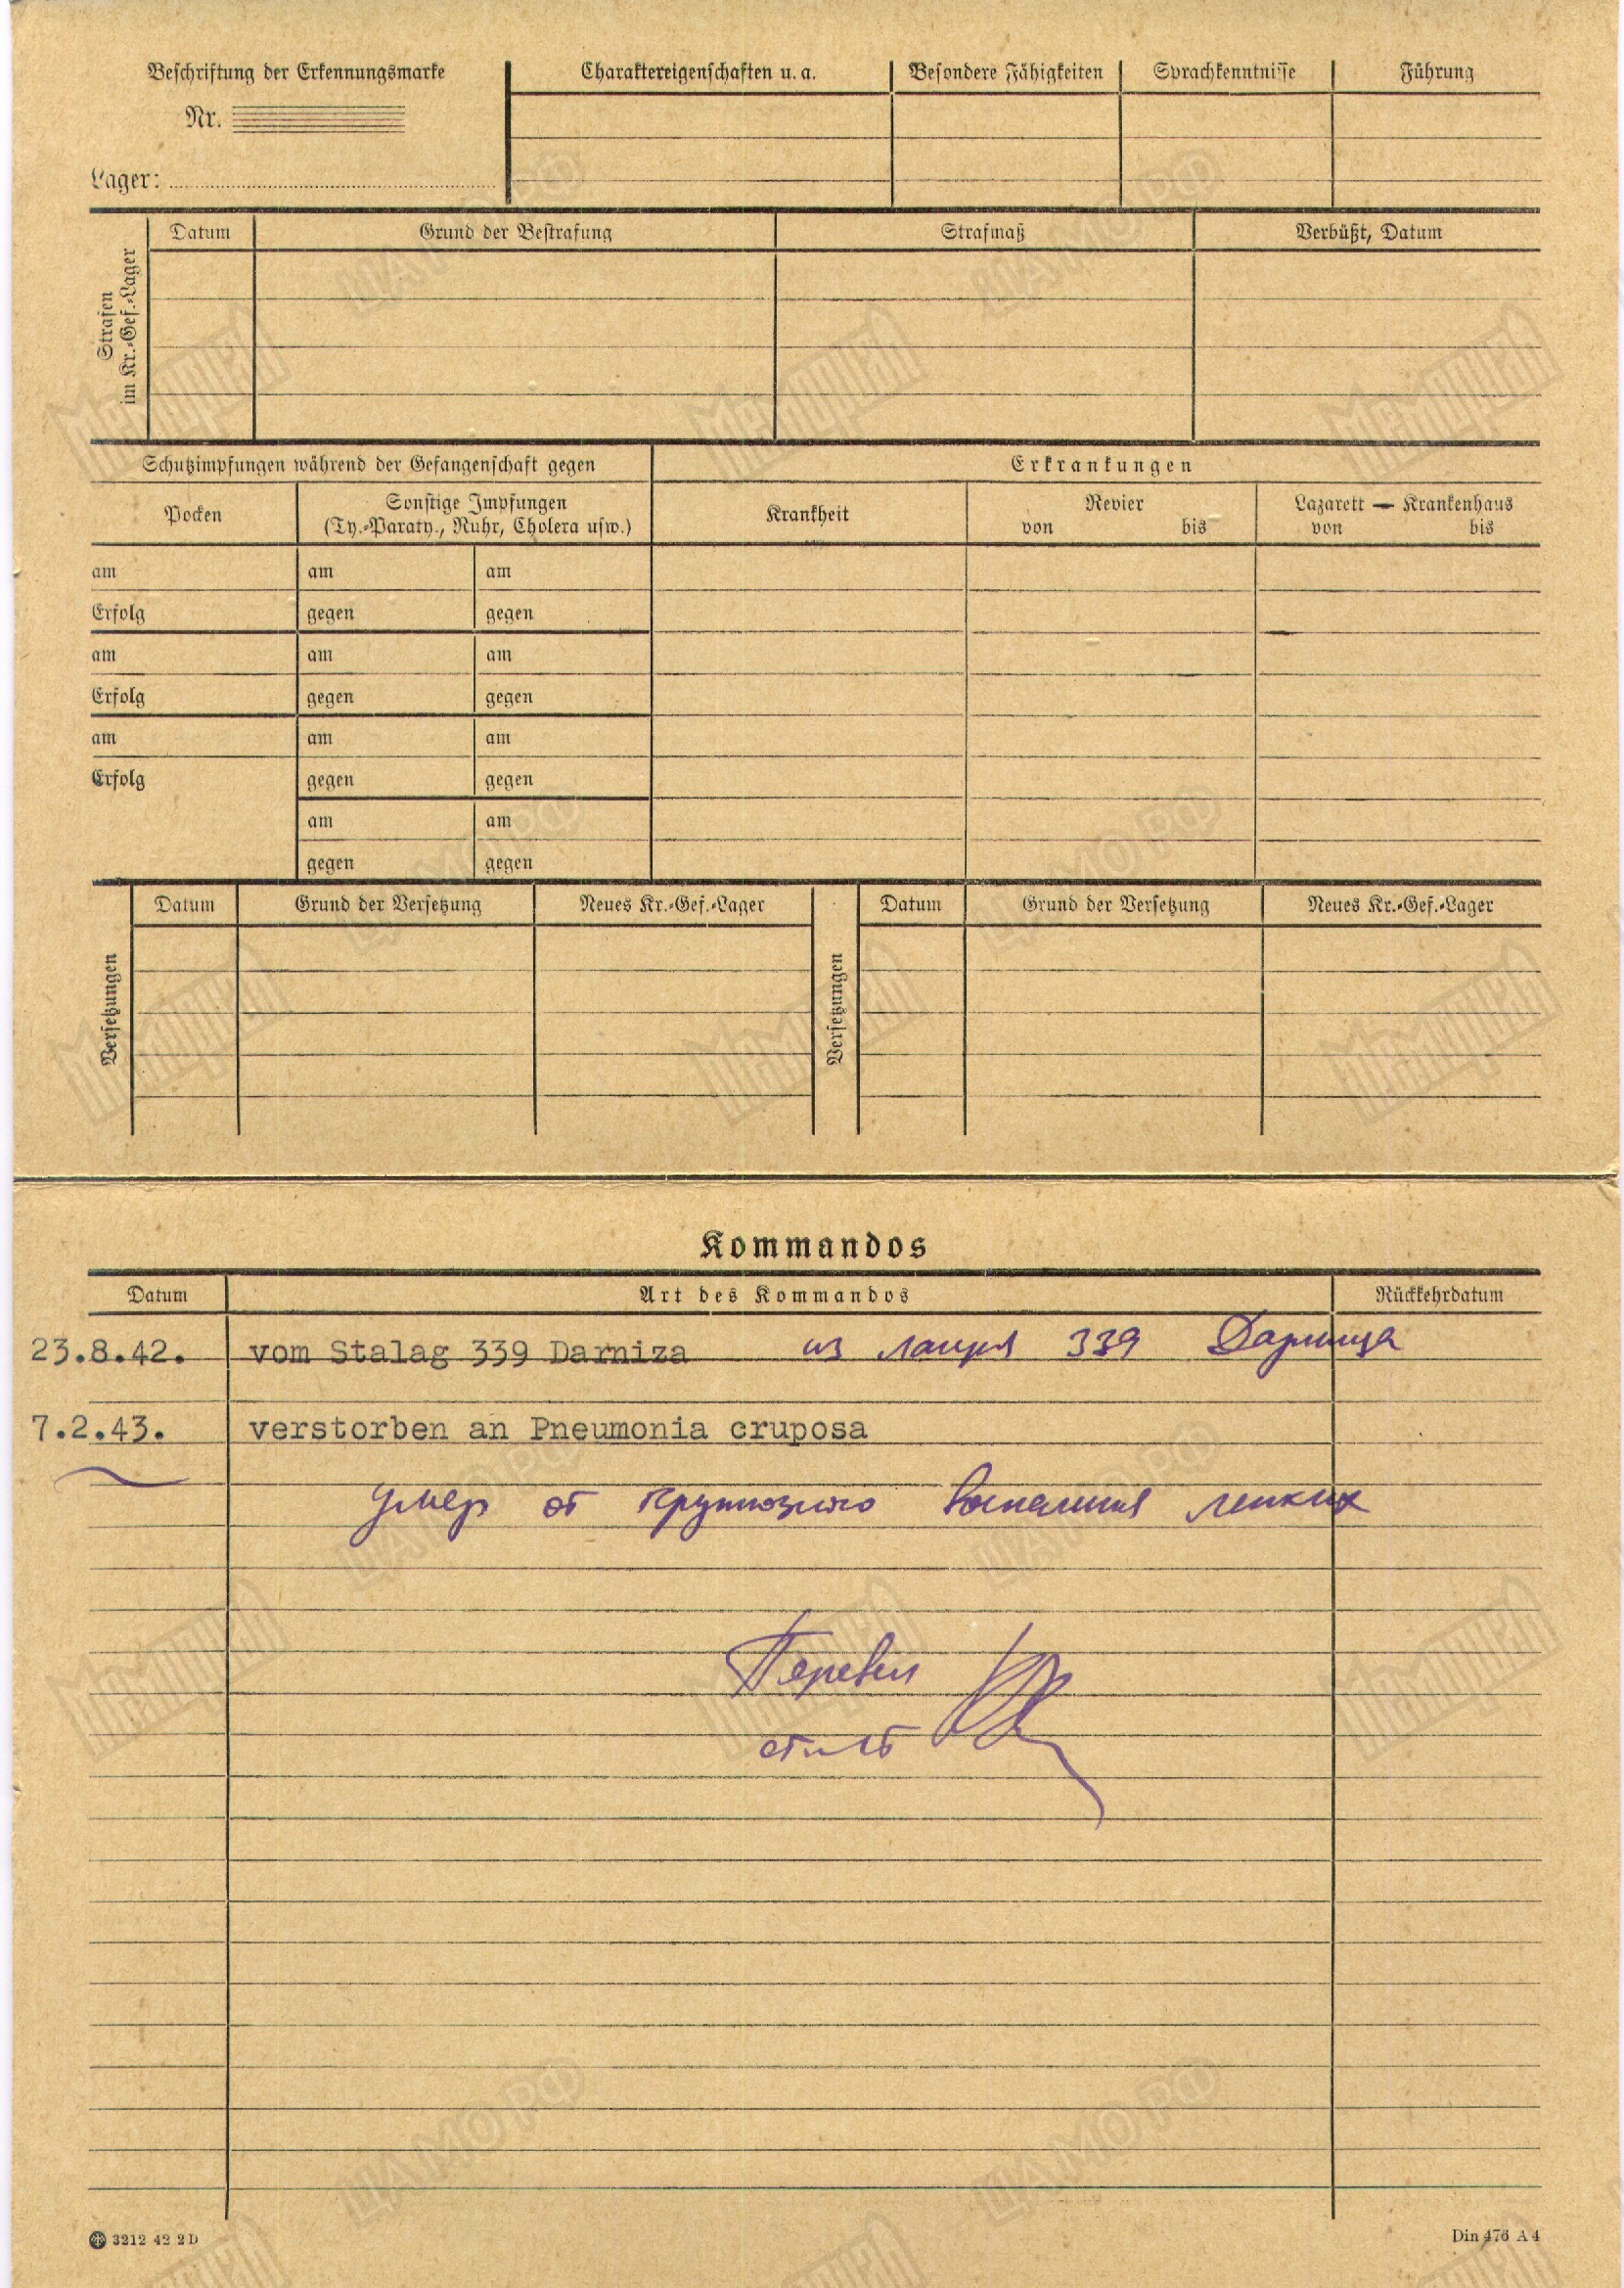 Beschriftung der Erkennungsmarke
Nr.
Lager:
Charaktereigenschaften u. a. Besondere Fähigkeiten Sprachkenntnisse Führung
Strafen
im Kr.-Gef.-Lager
Datum Grund der Bestrafung Strafmaß Verbüßt, Datum
Schutzimpfungen während der Gefangenschaft gegen Erkrankungen
Pocken Sonstige Impfungen Krankheit Revier Lazarett — Krankenhaus
(Ty.-Paraty., Ruhr, Cholera usw.) von bis von bis
am am am
Erfolg gegen gegen
am am am
Erfolg gegen gegen
am am am
Erfolg gegen gegen
am am
gegen gegen
Versetzungen
Datum Grund der Versetzung Neues Kr.-Gef.-Lager
Versetzungen
Datum Grund der Versetzung Neues Kr.-Gef.-Lager
Kommandos
Datum Art des Kommandos Rückkehrdatum
23.8.42. vom Stalag 339 Darniza из лагеря 339 Дарница
7.2.43. verstorben an Pneumonia cruposa
умер от крупозного воспаления легких
Перевел
3212 42 2 D Din 476 A 4
Мемориал
ЦАМО РФ